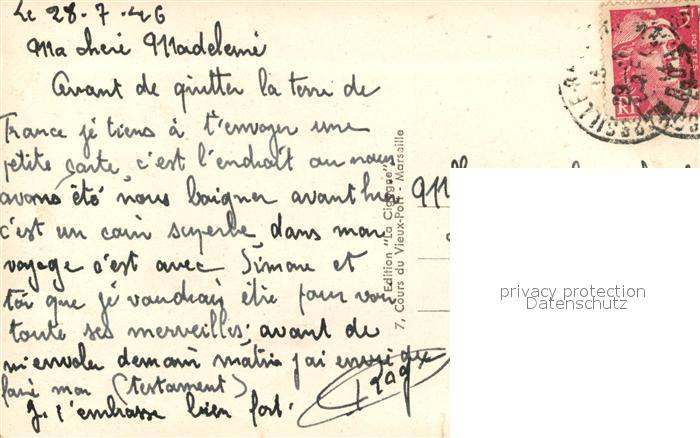 Le 28-7-46
Ma cheré Madeleiné
Avant de quitter la terre de
France je tiens à t'envoyer une
petite carte, c'est l'endroit ou nous
avons été nous baigner avant hier
c'est un coin superbe dans mon
voyage c'est avec Simone et
toi que je voudrais être pour voir
toute ses merveilles; avant de
m'envoler demain matin j'ai envie de
faire mon (testament)
Je t'embrasse bien fort.
Edition "La Cigogne"
7, Cours du Vieux-Port - Marseille
RF
privacy protection
Datenschutz